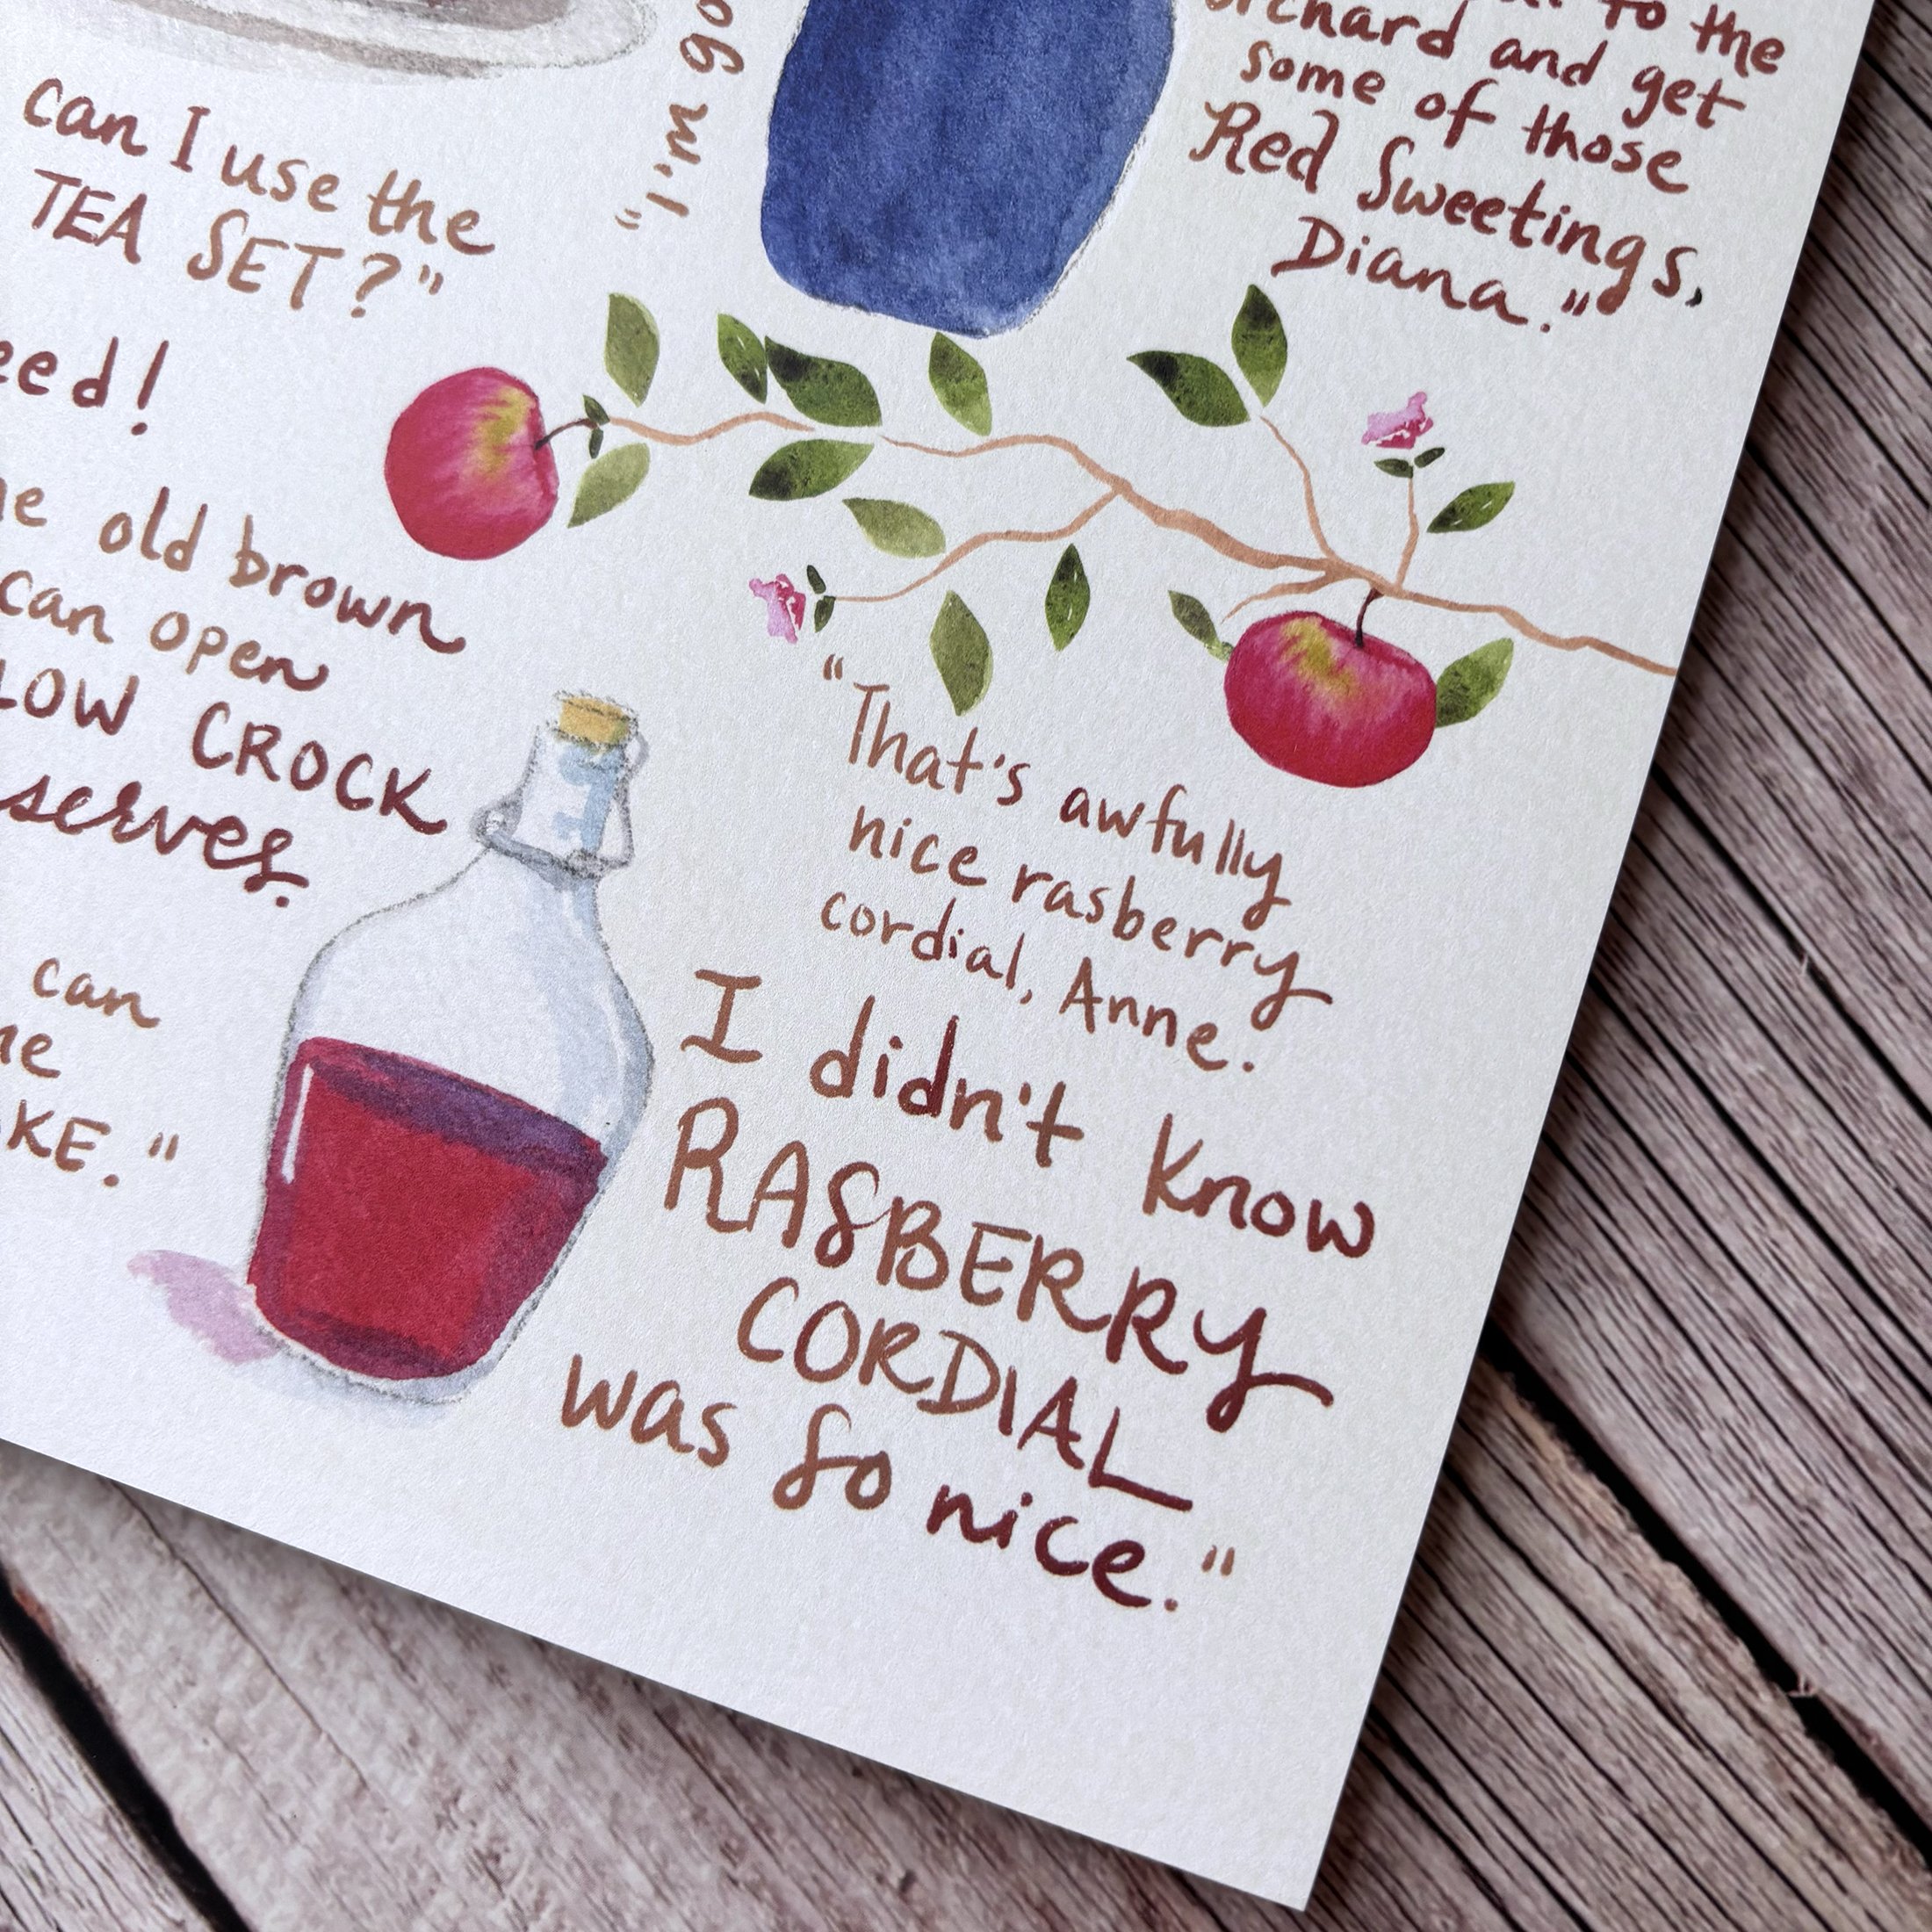 can I use the
TEA SET?"
old brown
can open
CROCK
can
"I'm go
to the
orchard and get
some of those
Red Sweetings,
Diana."
"That's awfully
nice rasberry
cordial, Anne.
I didn't know
RASBERRY
CORDIAL
was so nice."